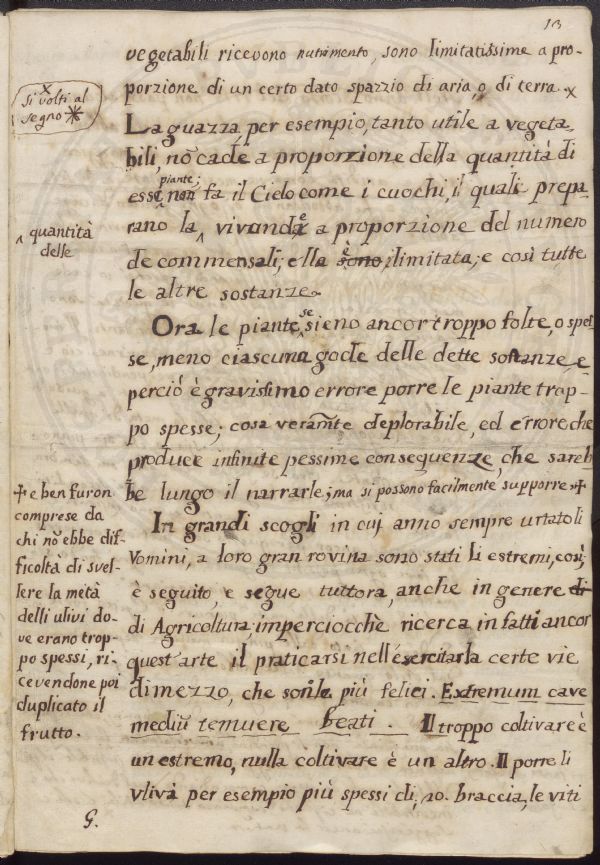 13
vegetabili ricevono nutrimento, sono limitatissime a pro-
porzione di un certo dato spazzio di aria, o di terra. x
x
si volti al
segno
La guazza per esempio, tanto utile a vegeta-
bili, nõ cade a proporzione della quantità di
esse piante; non fa il Cielo come i cuochi, il quali prepa-
rano la ^ vivande a proporzione del numero
^ quantità
delle
de commensali; ella sono è limitata; e così tutte
le altre sostanze.
Ora le piante, se sieno ancor troppo folte, o spes-
se, meno ciascuna gode delle dette sostanze, e
perciò è gravissimo errore porre le piante trop-
po spesse; cosa veramte deplorabile, ed errore che
produce infinite pessime consequenze, che sareb-
be lungo il narrarle; ma si possono facilmente supporre +
+ e ben furon
comprese da
chi nõ ebbe dif-
ficoltà di svel-
lere la metà
delli ulivi do-
ve erano trop-
po spessi, ri-
cevendone poi
duplicato il
frutto.
In grandi scogli in cui anno sempre urtato li
Vomini, a loro gran rovina sono stati li estremi, così;
è seguito, e segue tuttora, anche in genere di
di Agricoltura, imperciocchè ricerca in fatti ancor
quest'arte il praticarsi nell'esercitarla certe vie
di mezzo, che sonle più felici. Extremum cave
mediũ temuere beati. Il troppo coltivare è
un estremo, nulla coltivare è un altro. Il porre li
vlivi per esempio più spessi di, 20. braccia, le viti
G.